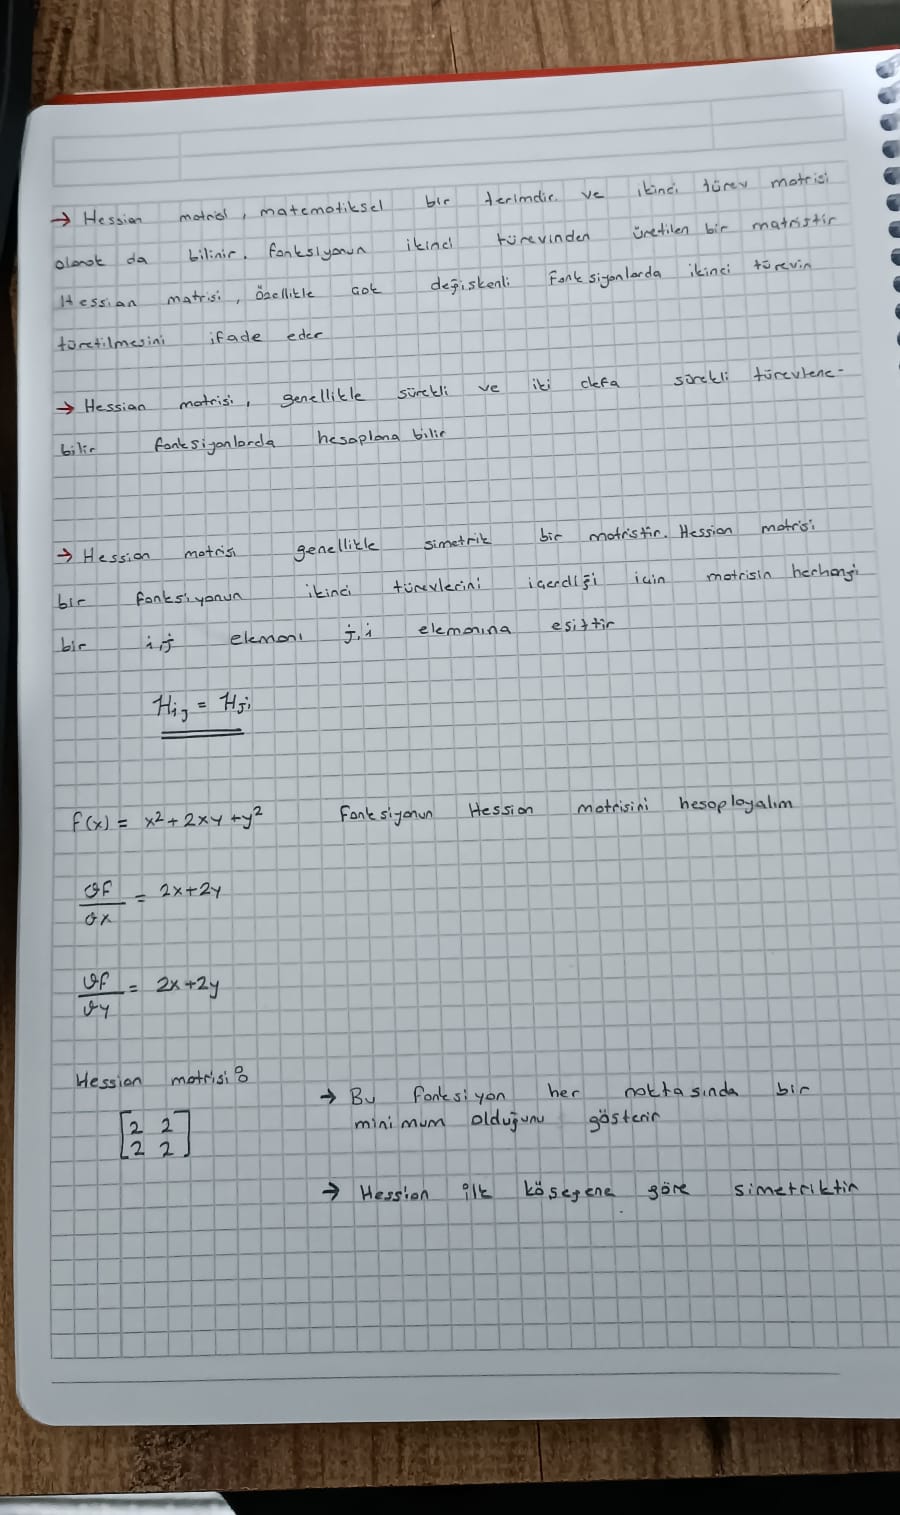 → Hessian matrisi, matematiksel bir terimdir. ve ikinci türev matrisi
olarak da bilinir. Fonksiyonun ikinci türevinden üretilen bir matristir
Hessian matrisi, özellikle çok değişkenli Fonksiyonlarda ikinci türevin
türetilmesini ifade eder
→ Hessian matrisi, genellikle sürekli ve iki defa sürekli türevlene-
bilir fonksiyonlarda hesaplana bilir
→ Hessian matrisi genellikle simetrik bir matristir. Hessian matrisi
bir fonksiyonun ikinci türevlerini içerdiği için matrisin herhangi
bir i,j elemanı j,i elemanına eşittir
Hij = Hji
f(x) = x² + 2xy + y² Fonksiyonun Hessian matrisini hesaplayalım
∂F/∂x = 2x+2y
∂F/∂y = 2x+2y
Hessian matrisi:
→ Bu fonksiyon her noktasında bir
[2 2 minimum olduğunu gösterir
2 2]
→ Hessian ilk köşegene göre simetriktir